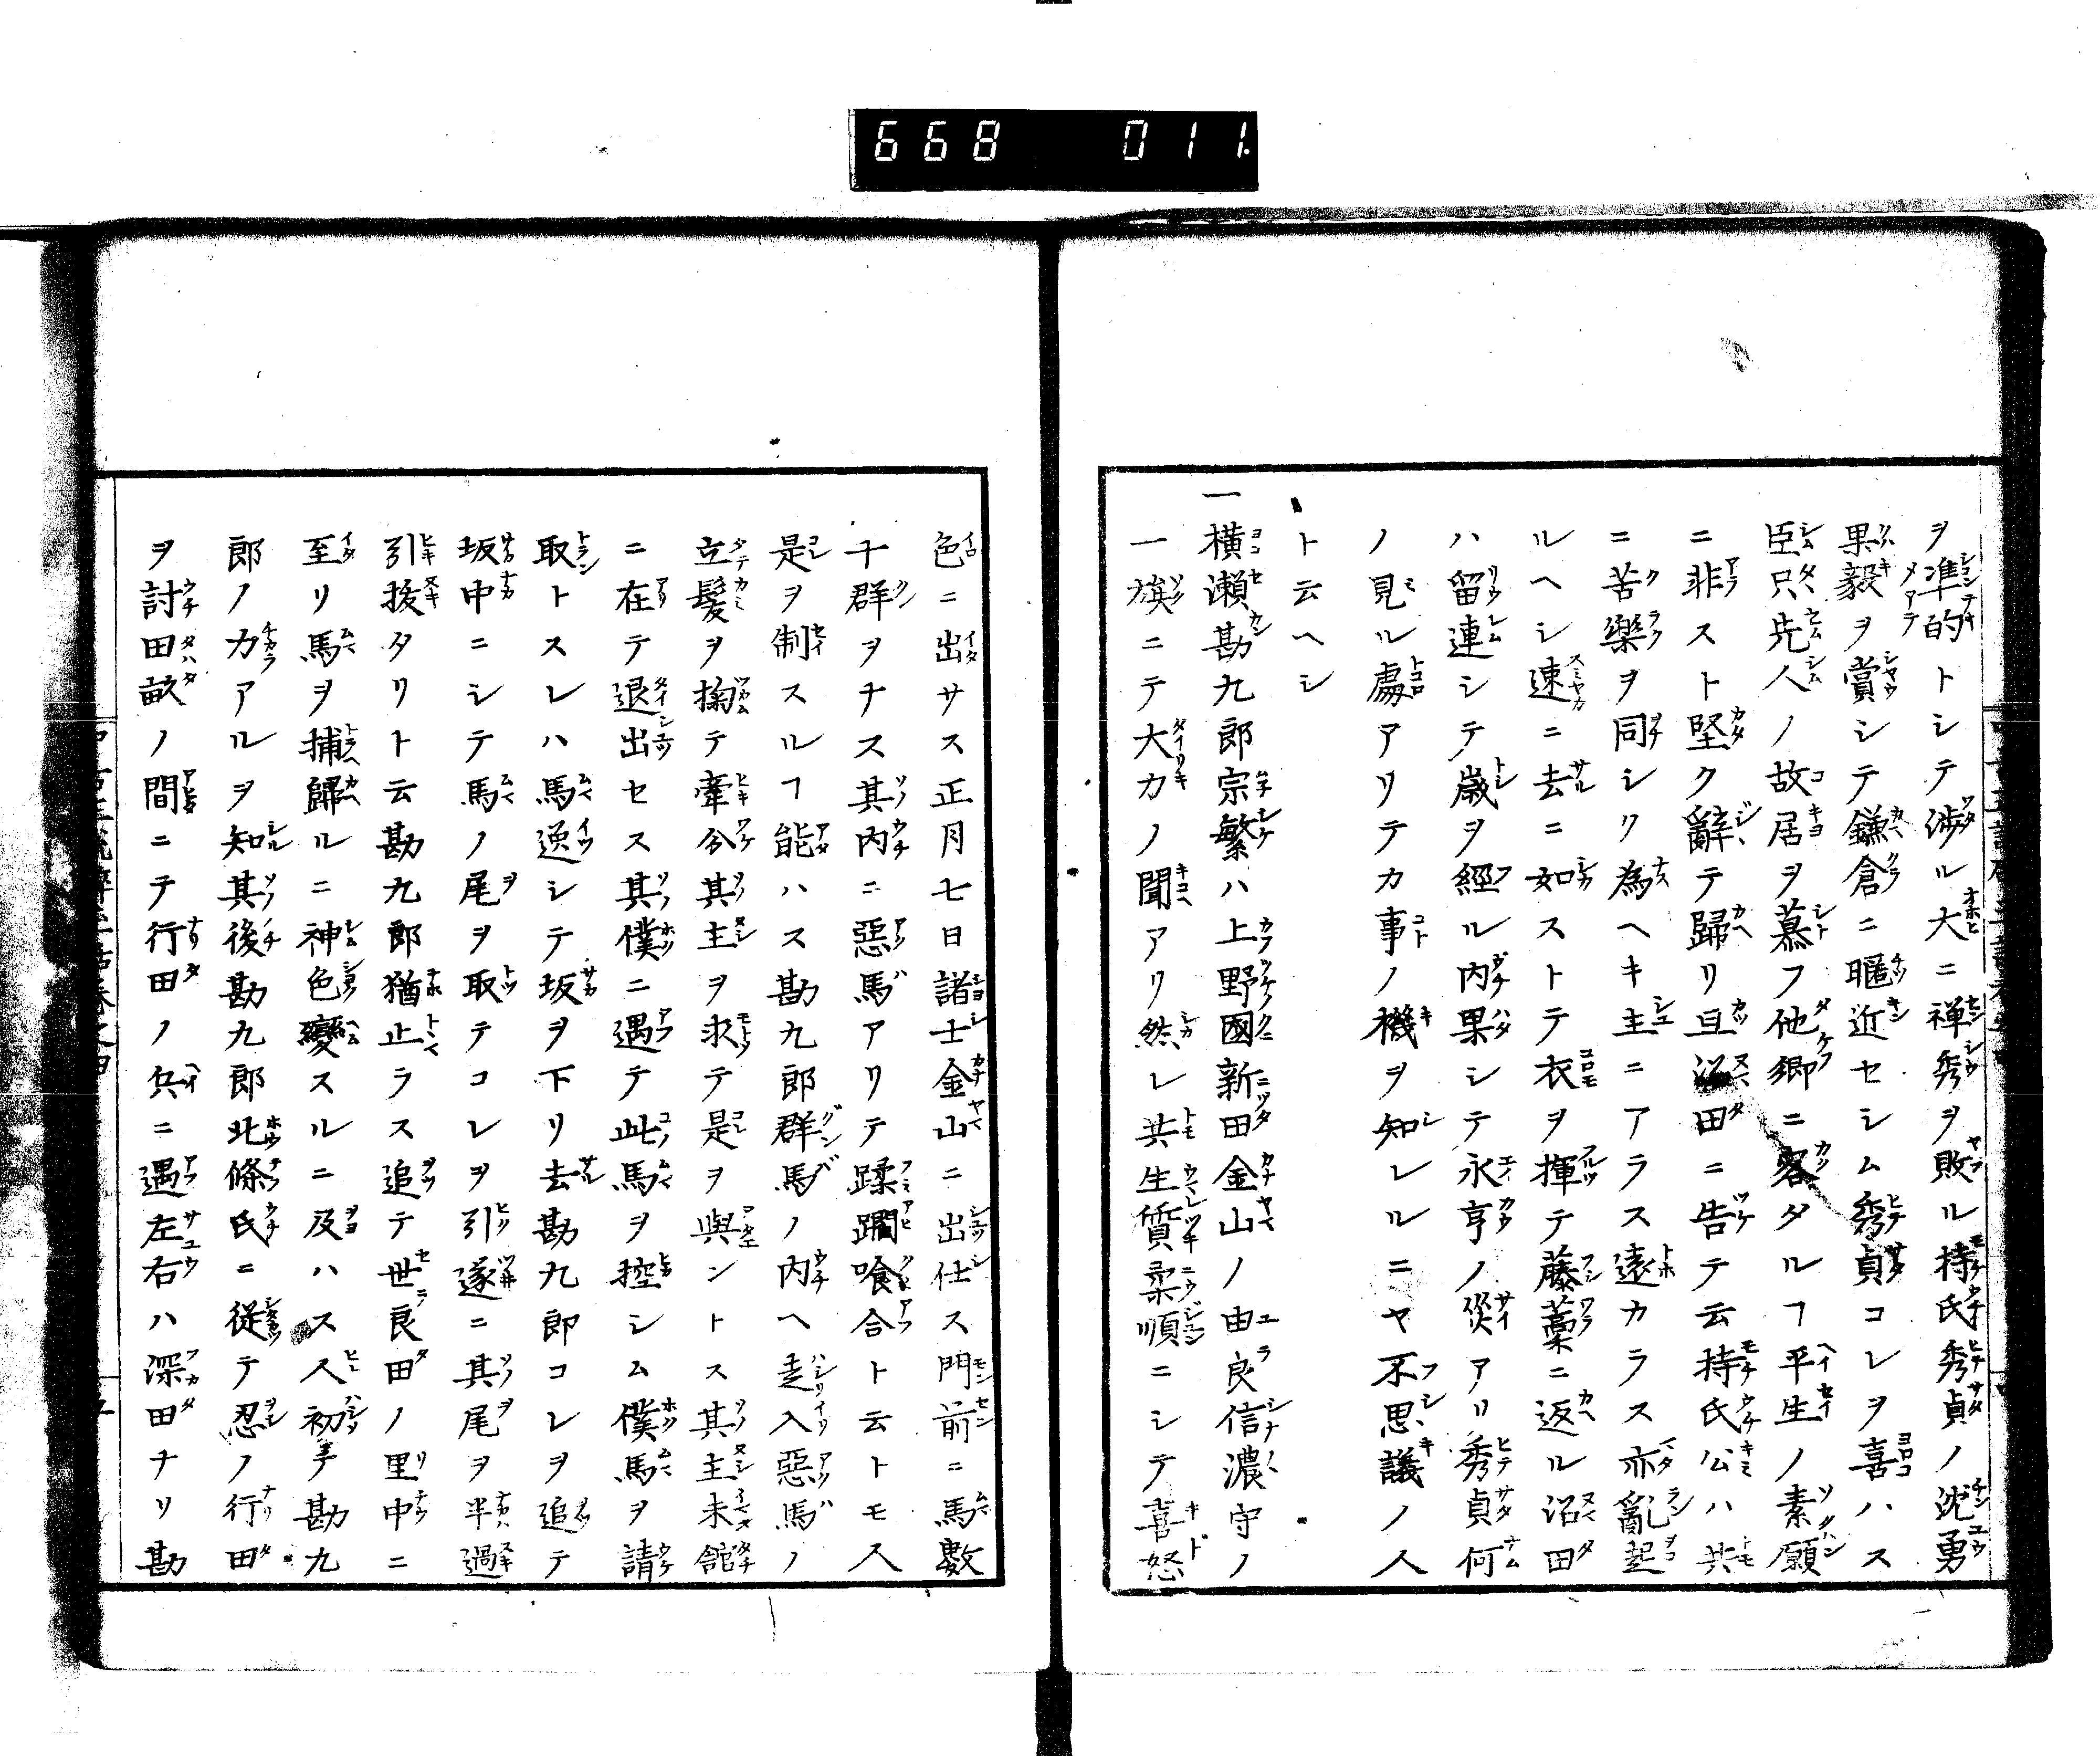 668 011
ヲ準的トシテ渉ル大ニ禅秀ヲ敗ル持氏秀貞ノ沈勇
果毅ヲ賞シテ鎌倉ニ暱近セシム秀貞コレヲ喜ハス
臣只先人ノ故居ヲ慕フ他郷ニ客タルヿ平生ノ素願
ニ非ストト堅ク辭テ歸リ且沼田ニ告テ云持氏公ハ共
ニ苦樂ヲ同シクリ為ヘキ主ニアラス遠カラス亦亂起
ルヘシ速ニ去ルニ如ストテ衣ヲ揮テ藤藁ニ返ル沼田
ハ留連シテ歳ヲ經ル内果シテ永享ノ災アリ秀貞何
ノ見ル處アリテカ事ノ機ヲ知レルニヤ不思議ノ人
ト云ヘシ
一横瀬勘九郎宗繁ハ上野國新田金山ノ由良信濃守ノ
一族ニテ大力ノ聞アリ然レ共生質柔順ニシテ喜怒
色ニ出サス正月七日諸士金山ニ出仕ス門前ニ馬數
十群ヲナス其内ニ惡馬アリテ蹂躙喰合ト云トモ人
是ヲ制スルヿ能ハス勘九郎群馬ノ内ヘ走入惡馬ノ
立髪ヲ掬テ牽分其主ヲ求テ是ヲ與ントス其主未舘
ニ在テ退出セス其僕ニ遇テ此馬ヲ控シム僕馬ヲ請
取トスレハ馬逸シテ坂ヲ下リ去勘九郎コレヲ追テ
坂中ニシテ馬ノ尾ヲ取テコレヲ引遂ニ其尾ヲ半過
引拔タリト云勘九郎猶止ラス追テ世良田ノ里中ニ
至リ馬ヲ捕歸ルニ神色變スルニ及ハス人初テ勘九
郎ノ力アルヲ知其後勘九郎北條氏ニ従テ忍ノ行田
ヲ討田畝ノ間ニテ行田ノ兵ニ遇左右ハ深田ナリ勘